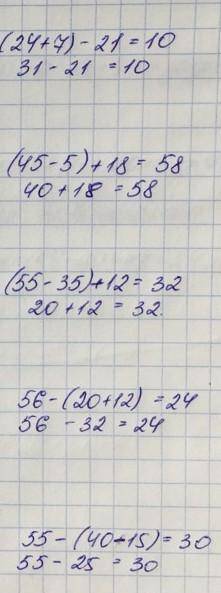 (24+7)-21=10
31-21=10
(45-5)+18=58
40+18=58
(55-35)+12=32
20+12=32.
56-(20+12)=24
56-32=24
55-(40-15)=30
55-25=30